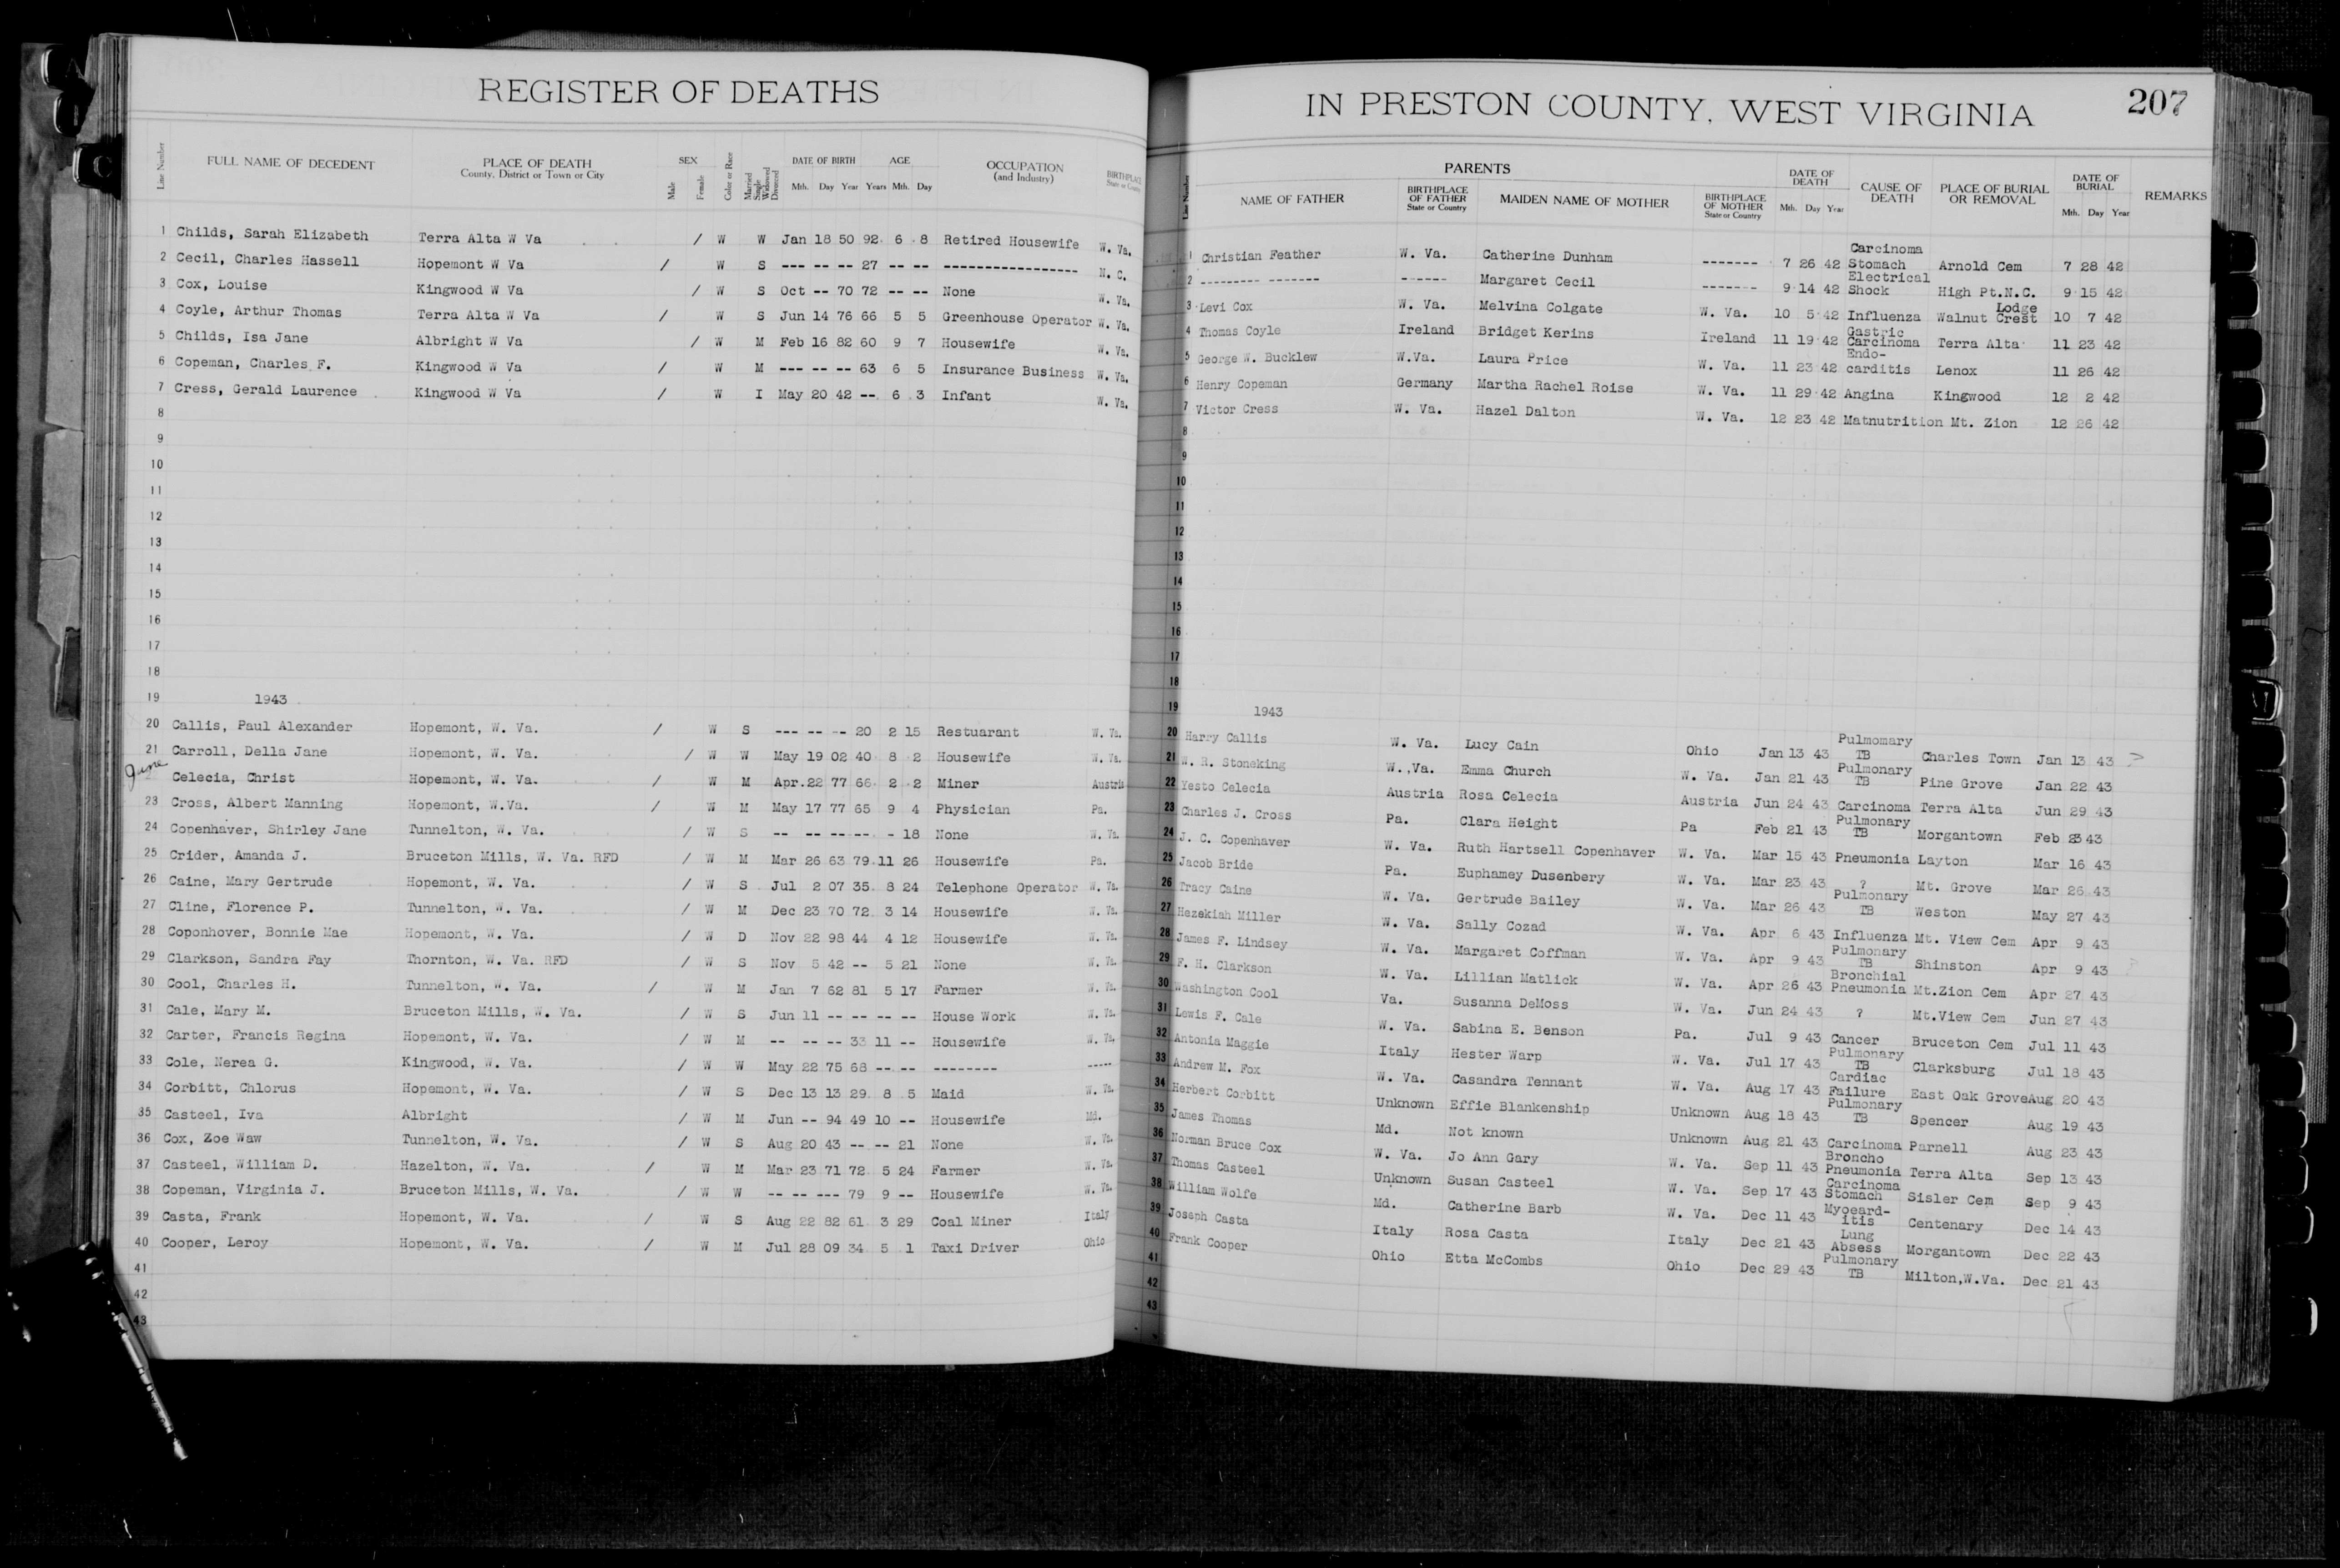 REGISTER OF DEATHS
Line Number FULL NAME OF DECEDENT PLACE OF DEATH County, District or Town or City SEX Male Female Color or Race Married Single Widowed Divorced DATE OF BIRTH Mth. Day Year AGE Years Mth. Day OCCUPATION (and Industry) BIRTHPLACE State or Country
1 Childs, Sarah Elizabeth Terra Alta W Va / W W Jan 18 50 92 6 8 Retired Housewife W. Va.
2 Cecil, Charles Hassell Hopemont W Va / W S --- -- -- 27 -- -- ----------------- N. C.
3 Cox, Louise Kingwood W Va / W S Oct -- 70 72 -- -- None W. Va.
4 Coyle, Arthur Thomas Terra Alta W Va / W S Jun 14 76 66 5 5 Greenhouse Operator W. Va.
5 Childs, Isa Jane Albright W Va / W M Feb 16 82 60 9 7 Housewife W. Va.
6 Copeman, Charles F. Kingwood W Va / W M --- -- -- 63 6 5 Insurance Business W. Va.
7 Cress, Gerald Laurence Kingwood W Va / W I May 20 42 -- 6 3 Infant W. Va.
8
9
10
11
12
13
14
15
16
17
18
19 1943
20 Callis, Paul Alexander Hopemont, W. Va. / W S --- -- -- 20 2 15 Restuarant W. Va.
21 Carroll, Della Jane Hopemont, W. Va. / W W May 19 02 40 8 2 Housewife W. Va.
June Celecia, Christ Hopemont, W. Va. / W M Apr. 22 77 66 2 2 Miner Austria
23 Cross, Albert Manning Hopemont, W.Va. / W M May 17 77 65 9 4 Physician Pa.
24 Copenhaver, Shirley Jane Tunnelton, W. Va. / W S -- -- -- -- - 18 None W. Va.
25 Crider, Amanda J. Bruceton Mills, W. Va. RFD / W M Mar 26 63 79 11 26 Housewife Pa.
26 Caine, Mary Gertrude Hopemont, W. Va. / W S Jul 2 07 35 8 24 Telephone Operator W. Va.
27 Cline, Florence P. Tunnelton, W. Va. / W M Dec 23 70 72 3 14 Housewife W. Va.
28 Coponhover, Bonnie Mae Hopemont, W. Va. / W D Nov 22 98 44 4 12 Housewife W. Va.
29 Clarkson, Sandra Fay Thornton, W. Va. RFD / W S Nov 5 42 -- 5 21 None W. Va.
30 Cool, Charles H. Tunnelton, W. Va. / W M Jan 7 62 81 5 17 Farmer W. Va.
31 Cale, Mary M. Bruceton Mills, W. Va. / W S Jun 11 -- -- -- -- House Work W. Va.
32 Carter, Francis Regina Hopemont, W. Va. / W M -- -- -- 33 11 -- Housewife W. Va.
33 Cole, Nerea G. Kingwood, W. Va. / W W May 22 75 68 -- -- -------- -----
34 Corbitt, Chlorus Hopemont, W. Va. / W S Dec 13 13 29 8 5 Maid W. Va.
35 Casteel, Iva Albright / W M Jun -- 94 49 10 -- Housewife Md.
36 Cox, Zoe Waw Tunnelton, W. Va. / W S Aug 20 43 -- -- 21 None W. Va.
37 Casteel, William D. Hazelton, W. Va. / W M Mar 23 71 72 5 24 Farmer W. Va.
38 Copeman, Virginia J. Bruceton Mills, W. Va. / W W -- -- --- 79 9 -- Housewife W. Va.
39 Casta, Frank Hopemont, W. Va. / W S Aug 22 82 61 3 29 Coal Miner Italy
40 Cooper, Leroy Hopemont, W. Va. / W M Jul 28 09 34 5 1 Taxi Driver Ohio
41
42
43
IN PRESTON COUNTY, WEST VIRGINIA 207
Line Number PARENTS NAME OF FATHER BIRTHPLACE OF FATHER State or Country MAIDEN NAME OF MOTHER BIRTHPLACE OF MOTHER State or Country DATE OF DEATH Mth. Day Year CAUSE OF DEATH PLACE OF BURIAL OR REMOVAL DATE OF BURIAL Mth. Day Year REMARKS
1 Christian Feather W. Va. Catherine Dunham ------- 7 26 42 Carcinoma Stomach Arnold Cem 7 28 42
2 --------- ------- ------ Margaret Cecil ------- 9 14 42 Electrical Shock High Pt.N.C. 9 15 42
3 Levi Cox W. Va. Melvina Colgate W. Va. 10 5 42 Influenza Walnut Lodge Crest 10 7 42
4 Thomas Coyle Ireland Bridget Kerins Ireland 11 19 42 Gastric Carcinoma Terra Alta 11 23 42
5 George W. Bucklew W.Va. Laura Price W. Va. 11 23 42 Endo-carditis Lenox 11 26 42
6 Henry Copeman Germany Martha Rachel Roise W. Va. 11 29 42 Angina Kingwood 12 2 42
7 Victor Cress W. Va. Hazel Dalton W. Va. 12 23 42 Matnutrition Mt. Zion 12 26 42
8
9
10
11
12
13
14
15
16
17
18
19 1943
20 Harry Callis W. Va. Lucy Cain Ohio Jan 13 43 Pulmomary TB Charles Town Jan 13 43
21 W. R. Stoneking W. Va. Emma Church W. Va. Jan 21 43 Pulmonary TB Pine Grove Jan 22 43
22 Yesto Celecia Austria Rosa Celecia Austria Jun 24 43 Carcinoma Terra Alta Jun 29 43
23 Charles J. Cross Pa. Clara Height Pa Feb 21 43 Pulmonary TB Morgantown Feb 23 43
24 J. C. Copenhaver W. Va. Ruth Hartsell Copenhaver W. Va. Mar 15 43 Pneumonia Layton Mar 16 43
25 Jacob Bride Pa. Euphamey Dusenbery W. Va. Mar 23 43 ? Mt. Grove Mar 26 43
26 Tracy Caine W. Va. Gertrude Bailey W. Va. Mar 26 43 Pulmonary TB Weston May 27 43
27 Hezekiah Miller W. Va. Sally Cozad W. Va. Apr 6 43 Influenza Mt. View Cem Apr 9 43
28 James F. Lindsey W. Va. Margaret Coffman W. Va. Apr 9 43 Pulmonary TB Shinston Apr 9 43
29 F. H. Clarkson W. Va. Lillian Matlick W. Va. Apr 26 43 Bronchial Pneumonia Mt.Zion Cem Apr 27 43
30 Washington Cool Va. Susanna DeMoss W. Va. Jun 24 43 ? Mt.View Cem Jun 27 43
31 Lewis F. Cale W. Va. Sabina E. Benson Pa. Jul 9 43 Cancer Bruceton Cem Jul 11 43
32 Antonia Maggie Italy Hester Warp W. Va. Jul 17 43 Pulmonary TB Clarksburg Jul 18 43
33 Andrew M. Fox W. Va. Casandra Tennant W. Va. Aug 17 43 Cardiac Failure East Oak Grove Aug 20 43
34 Herbert Corbitt Unknown Effie Blankenship Unknown Aug 18 43 Pulmonary TB Spencer Aug 19 43
35 James Thomas Md. Not known Unknown Aug 21 43 Carcinoma Parnell Aug 23 43
36 Norman Bruce Cox W. Va. Jo Ann Gary W. Va. Sep 11 43 Broncho Pneumonia Terra Alta Sep 13 43
37 Thomas Casteel Unknown Susan Casteel W. Va. Sep 17 43 Carcinoma Stomach Sisler Cem Sep 9 43
38 William Wolfe Md. Catherine Barb W. Va. Dec 11 43 Myoeard-itis Centenary Dec 14 43
39 Joseph Casta Italy Rosa Casta Italy Dec 21 43 Lung Absess Morgantown Dec 22 43
40 Frank Cooper Ohio Etta McCombs Ohio Dec 29 43 Pulmonary TB Milton,W.Va. Dec 21 43
41
42
43